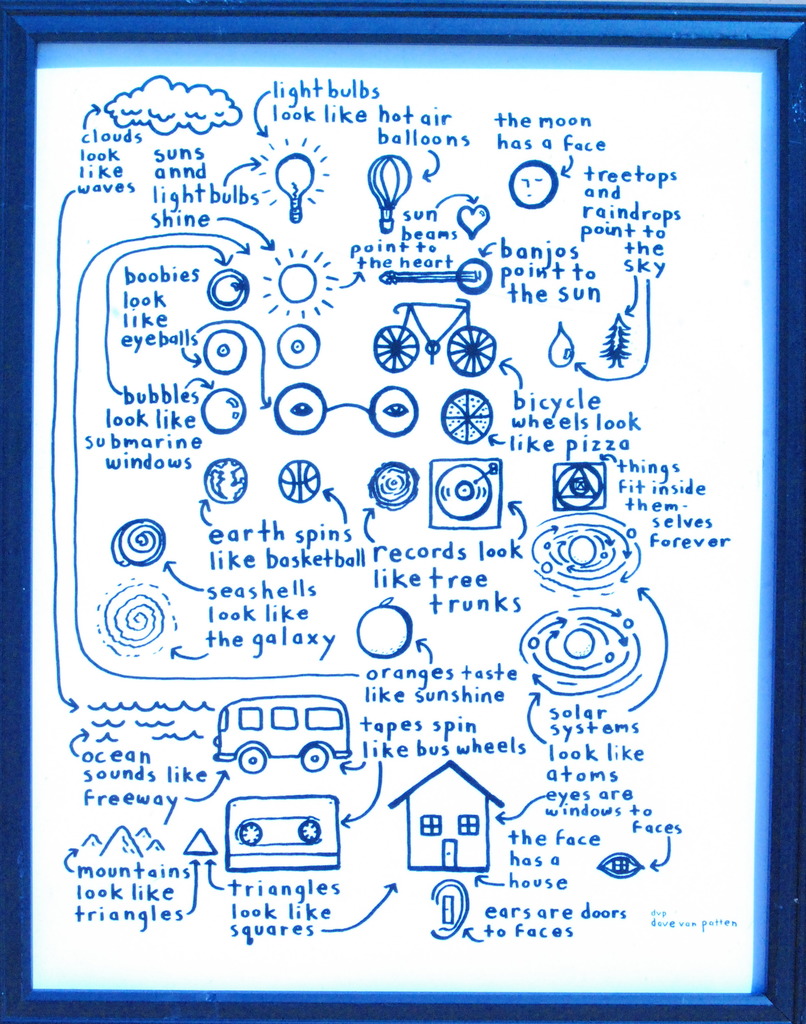 clouds
look
like
waves
light bulbs
look like hot air
balloons
the moon
has a face
suns
annd
light bulbs
shine
treetops
and
raindrops
point to
the
sky
sun
beams
point to
the heart
banjos
point to
the sun
boobies
look
like
eyeballs
bubbles
look like
submarine
windows
bicycle
wheels look
like pizza
earth spins
like basketball
records look
like tree
trunks
things
fit inside
them-
selves
forever
seashells
look like
the galaxy
oranges taste
like sunshine
solar
systems
look like
atoms
ocean
sounds like
freeway
tapes spin
like bus wheels
eyes are
windows to
faces
the face
has a
house
mountains
look like
triangles
triangles
look like
squares
ears are doors
to faces
dvp
dave van patten